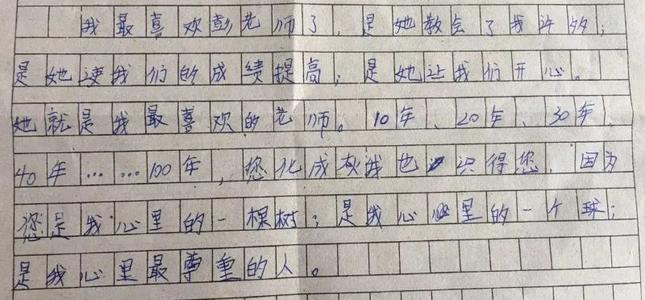 我最喜欢彭老师了，是她教会了我许多；
是她使我们的成绩提高；是她让我们开心。
她就是我最喜欢的老师。10年、20年、30年、
40年……100年，您化成灰我也识得您，因为
您是我心里的一棵树；是我心里的一个球；
是我心里最尊重的人。